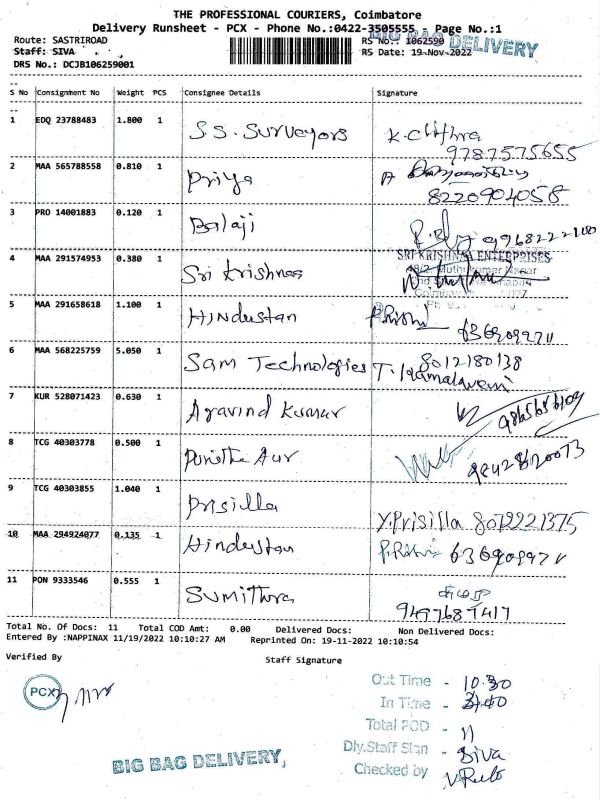 THE PROFESSIONAL COURIERS, Coimbatore
Delivery Runsheet - PCX - Phone No.:0422-3505555 - Page No.:1
BIG BAG DELIVERY
Route: SASTRIROAD RS No.: 1062590
Staff: SIVA RS Date: 19-Nov-2022
DRS No.: DCJB106259001
S No Consignment No Weight PCS Consignee Details Signature
1 EDQ 23788483 1.800 1 S.S. Surveyors K. Chithra
9787575655
2 MAA 565788558 0.810 1 Priya
8220904058
3 PRO 14001883 0.120 1 Balaji
4 MAA 291574953 0.380 1 Sri Krishnas SRI KRISHNAA ENTERPRISES
5 MAA 291658618 1.100 1 Hindustan P. Rishi
6 MAA 568225759 5.050 1 Sam Technologies T. Kamalaveni
8012180138
7 KUR 528071423 0.630 1 Aravind Kumar
8 TCG 40303778 0.500 1
9 TCG 40303855 1.040 1 Prisilla
Y. Prisilla 8072221375
10 MAA 294924077 0.135 1 Hindustan P. Rishi
11 PON 9333546 0.555 1 Sumithra
Total No. Of Docs: 11 Total COD Amt: 0.00 Delivered Docs: Non Delivered Docs:
Entered By :NAPPINAX 11/19/2022 10:10:27 AM Reprinted On: 19-11-2022 10:10:54
Verified By Staff Signature
PCX
Out Time - 10.30
In Time -
Total POD - 11
Dly.Staff Sign - Siva
Checked by
BIG BAG DELIVERY,